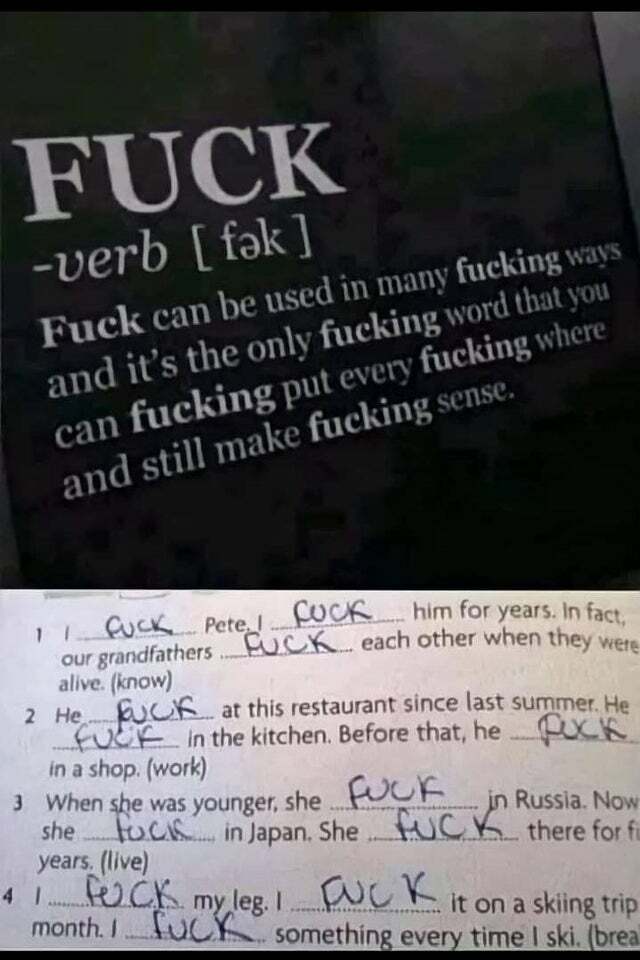 FUCK
-verb [fək]
Fuck can be used in many fucking ways
and it's the only fucking word that you
can fucking put every fucking where
and still make fucking sense.
1 I FUCK Pete, I FUCK him for years. In fact,
our grandfathers FUCK each other when they were
alive. (know)
2 He FUCK at this restaurant since last summer. He
FUCK in the kitchen. Before that, he FUCK
in a shop. (work)
3 When she was younger, she FUCK in Russia. Now
she FUCK in Japan. She FUCK there for fi
years. (live)
4 I FUCK my leg. I FUCK it on a skiing trip
month. I FUCK something every time I ski. (brea